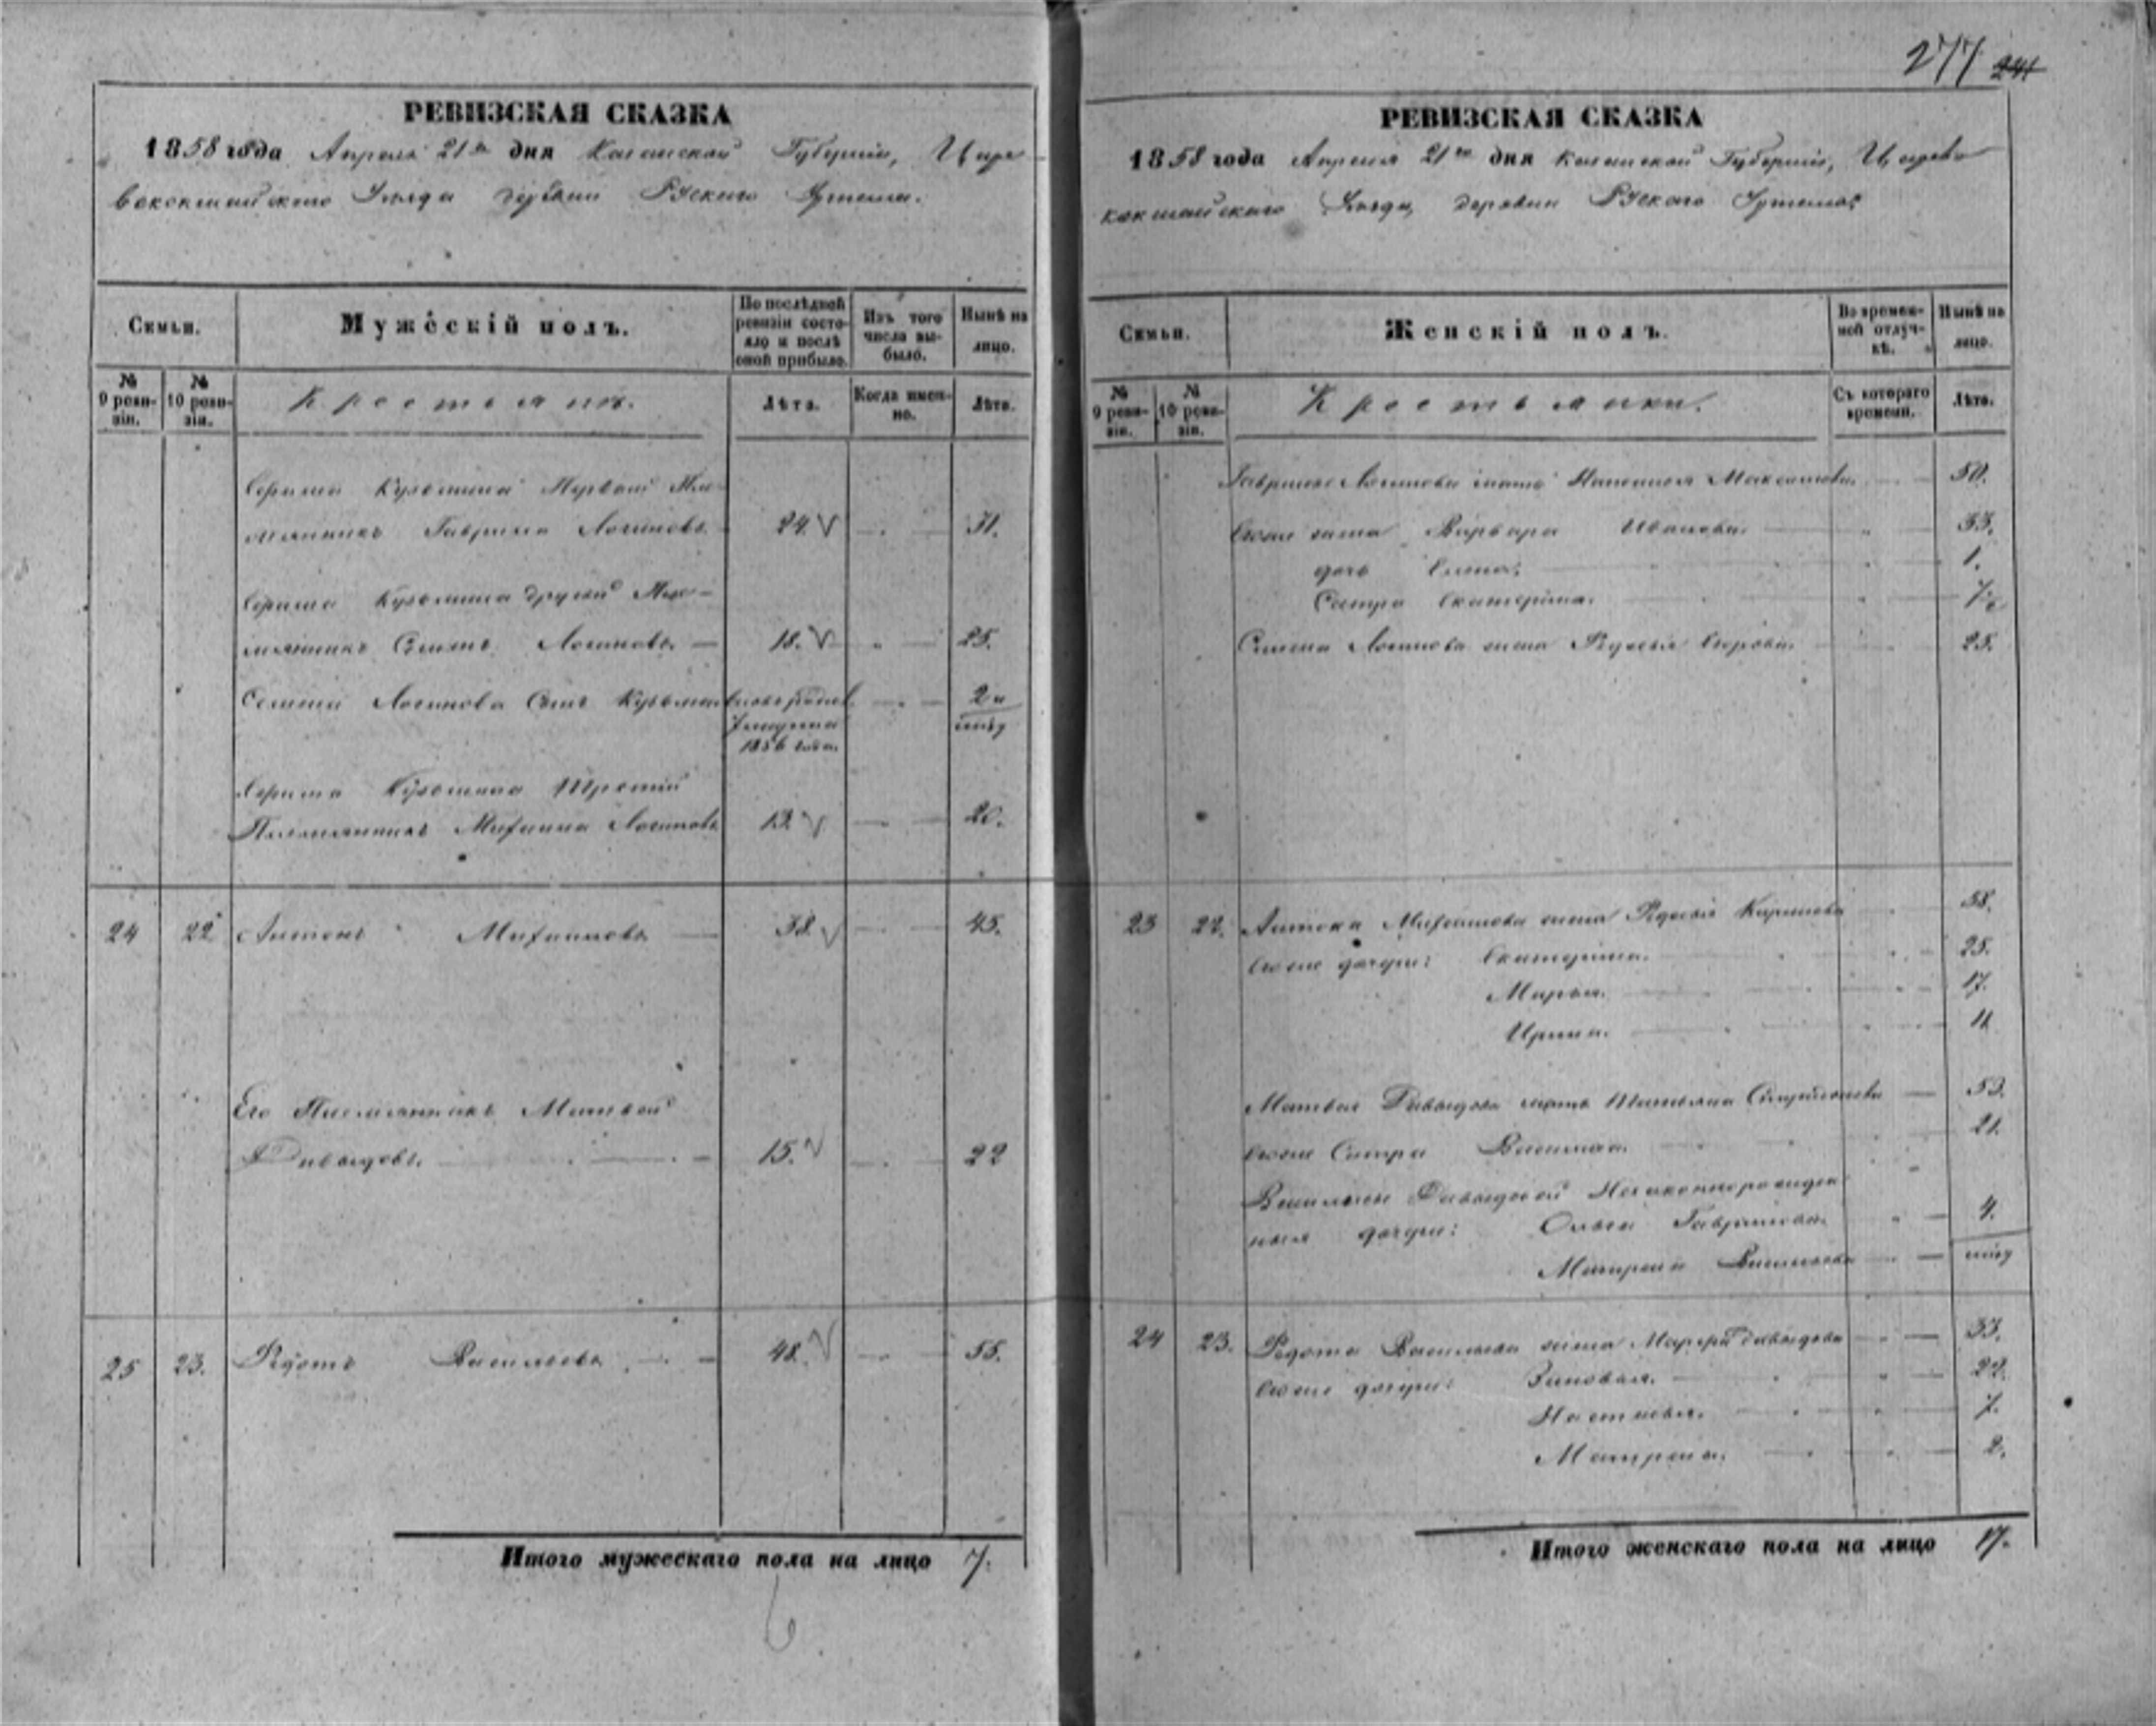 277 241
РЕВИЗСКАЯ СКАЗКА
1858 года Апреля 21го дня Казанской Губернии, Царе
вококшайского Уезда деревни Руского Уртема.
Семьи.
Мужескій полъ.
По послѣдней ревизіи состояло и послѣ оной прибыло.
Изъ того числа выбыло.
Нынѣ на лицо.
№ 9 ревизіи.
№ 10 ревизіи.
Крестьяне.
Лѣта.
Когда именно.
Лѣта.
Кузьмина Первой Пле-
мянникъ Гаврила Логиновъ 24. 31.
Кузьмина другой Пле-
мянникъ Семенъ Логиновъ 18. 25.
Семена Логинова Сынъ Кузьма 2
1856 года.
Кузьмина Третий
Племянникъ Михаила Логиновъ 13. 20.
24 22 Антонъ Михайловъ 38. 45.
Его Племянникъ Матвей
Давыдовъ. 15. 22
25 23. Федотъ Васильевъ 48. 55.
Итого мужескаго пола на лицо 7.
6
РЕВИЗСКАЯ СКАЗКА
1858 года Апреля 21го дня Казанской Губернии, Царево
кокшайского Уезда, деревни Руского Уртема
Семьи.
Женскій полъ.
Во временной отлучкѣ.
Нынѣ на лицо.
№ 9 ревизіи.
№ 10 ревизіи.
Крестьянки.
Съ котораго времени.
Лѣта.
Гаврилы Логинова мать Максимова 50.
Евоже жена Варвара Иванова. 33.
дочь Елена. 1.
Сестра Екатерина. 7
Семена Логинова жена Федосья Егорова. 25.
23 22. Антона Михайлова жена Федосья Карпова 58.
Евоже дочери: Екатерина. 25.
Марья. 17.
Ирина. 11
Матвея Давыдова мать Татьяна 53.
Евоже Сестра Васильяа. 21.
Давыдовой Незаконнорожден
ныя дочери: Ольга Гаврилова 4.
Матрена Васильева
24 23. Федота Васильева жена Давыдова 33.
Евоже дочери: Зиновья. 22.
Настасья. 7.
Матрена. 2.
Итого женскаго пола на лицо 17.